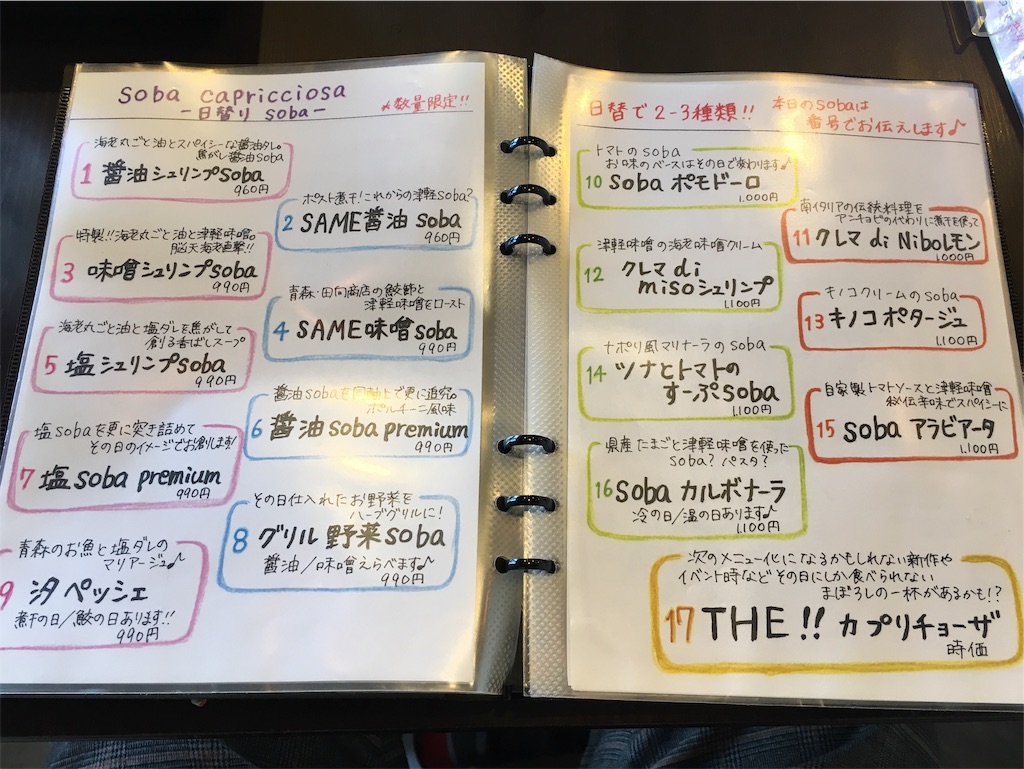 soba capricciosa
-日替り soba-
*数量限定!!
海老丸ごと油とスパイシーな醤油タレ。
焦がし醤油soba
1 醤油シュリンプsoba
960円
ポスト煮干!これからの津軽soba?
2 SAME醤油 soba
960円
特製!!海老丸ごと油と津軽味噌の
脳天海老直撃!!
3 味噌シュリンプsoba
990円
青森・田向商店の鮫節と
津軽味噌をロースト
4 SAME味噌soba
990円
海老丸ごと油と塩ダレを焦がして
創る香ばしスープ
5 塩シュリンプsoba
990円
醤油sobaを同軸上で更に追究。
ポルチーニ風味
6 醤油soba premium
990円
塩sobaを更に突き詰めて
その日のイメージでお創します!
7 塩soba premium
990円
その日仕入れたお野菜を
ハーブグリルに!
8 グリル野菜soba
醤油/味噌えらべます♪
990円
青森のお魚と塩ダレの
マリアージュ♪
9 汐ペッシェ
煮干の日/鮫の日あります!!
990円
日替で2-3種類!!
本日のsobaは
番号でお伝えします♪
トマトのsoba
お味のベースはその日で変わります♪
10 soba ポモドーロ
1.000円
南イタリアの伝統料理を
アンチョビの代わりに煮干を使って
11 クレマ di Niboレモン
1000円
津軽味噌の海老味噌クリーム
12 クレマ di
misoシュリンプ
1.100円
キノコクリームのsoba
13 キノコポタージュ
1.100円
ナポリ風マリナーラのsoba
14 ツナとトマトの
すーぷsoba
1.100円
自家製トマトソースと津軽味噌
秘伝辛味でスパイシーに
15 soba アラビアータ
1.100円
県産たまごと津軽味噌を使った
soba?パスタ?
16 soba カルボナーラ
冷の日/温の日あります♪
1,100円
次のメニュー化になるかもしれない新作や
イベント時などその日にしか食べられない
まぼろしの一杯があるかも!?
17 THE!! カプリチョーザ
時価